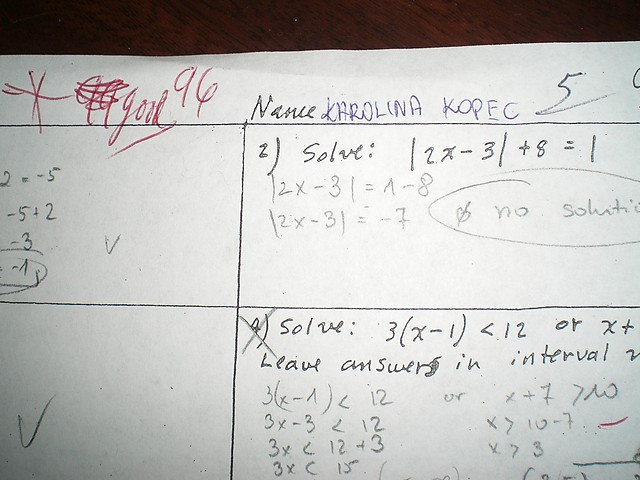 good 96
Name KAROLINA KOPEC 5
2 = -5
-5+2
-3
= -1
2) Solve: |2x-3|+8 = 1
|2x-3| = 1-8
|2x-3| = -7
ø no
4) Solve: 3(x-1) < 12 or x+
Leave answers in interval
3(x-1) < 12 or x+7 >10
3x-3 < 12 x > 10-7
3x < 12+3 x > 3
3x < 15